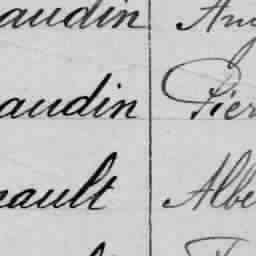 audin Aug
audin Pier
ault Albe